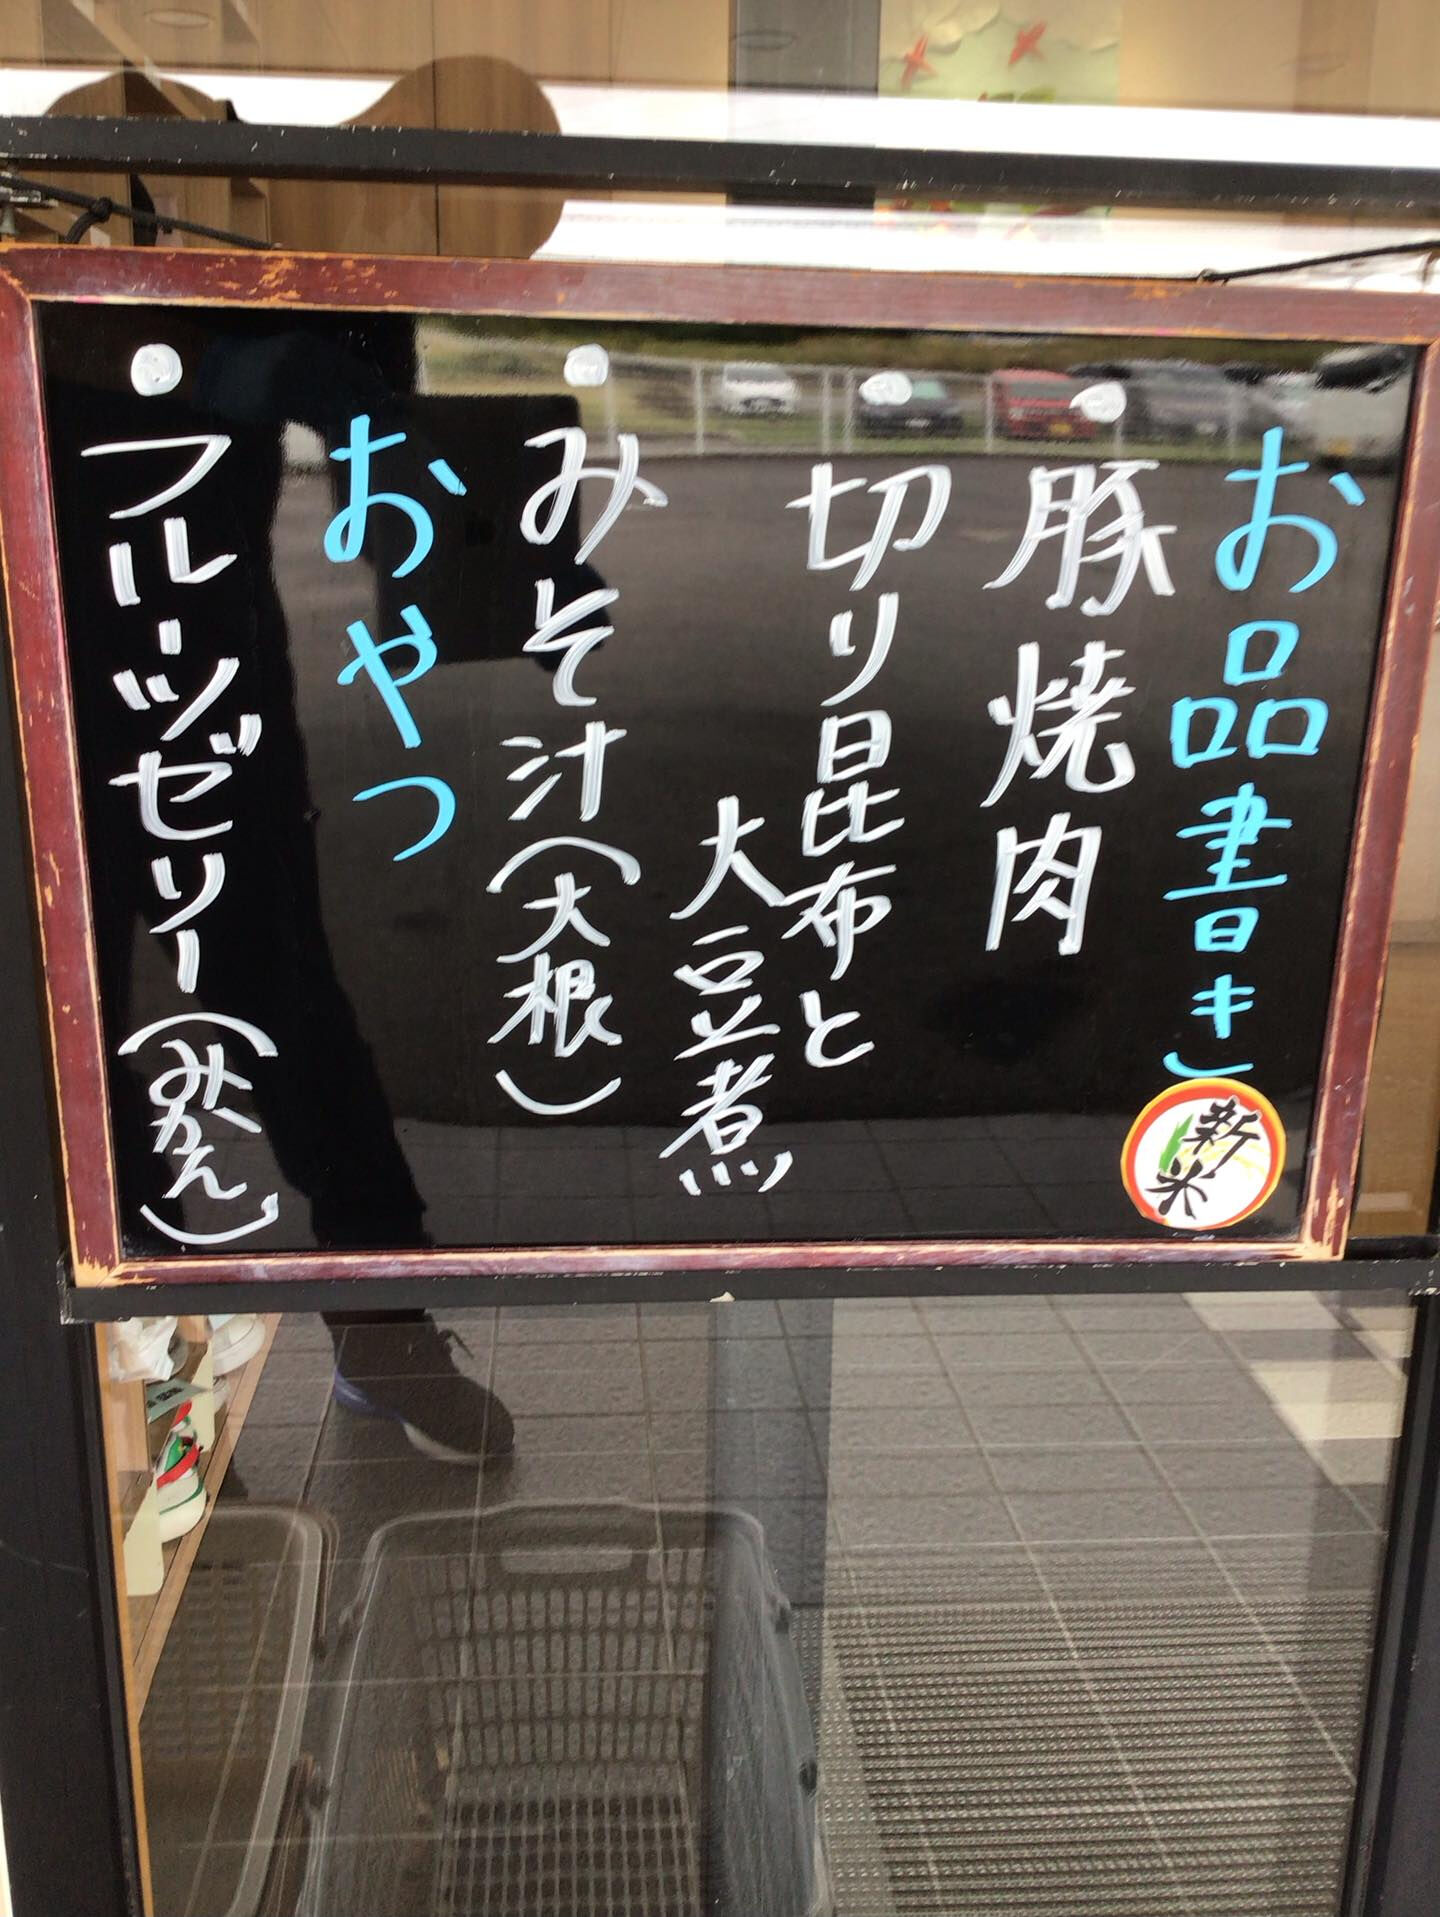 お品書き
新米
・豚焼肉
・切り昆布と
大豆煮
・みそ汁(大根)
おやつ
・フルーツゼリー(みかん)